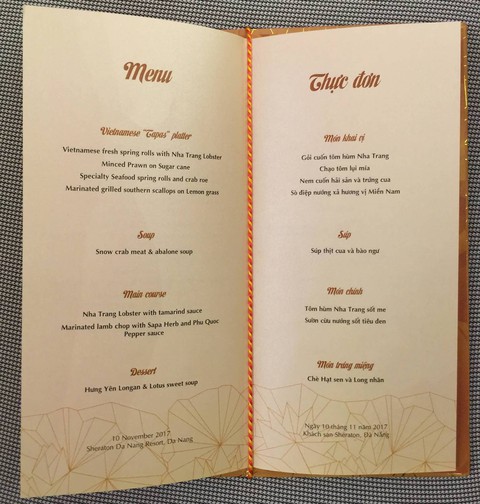 Menu
Vietnamese "Tapas" platter
Vietnamese fresh spring rolls with Nha Trang Lobster
Minced Prawn on Sugar cane
Specialty Seafood spring rolls and crab roe
Marinated grilled southern scallops on Lemon grass
Soup
Snow crab meat & abalone soup
Main course
Nha Trang Lobster with tamarind sauce
Marinated lamb chop with Sapa Herb and Phu Quoc
Pepper sauce
Dessert
Hưng Yên Longan & Lotus sweet soup
10 November 2017
Sheraton Da Nang Resort, Da Nang
Thực đơn
Món khai vị
Gỏi cuốn tôm hùm Nha Trang
Chạo tôm lụi mía
Nem cuốn hải sản và trứng cua
Sò điệp nướng xả hương vị Miền Nam
Súp
Súp thịt cua và bào ngư
Món chính
Tôm hùm Nha Trang sốt me
Sườn cừu nướng sốt tiêu đen
Món tráng miệng
Chè Hạt sen và Long nhãn
Ngày 10 tháng 11 năm 2017
Khách sạn Sheraton, Đà Nẵng